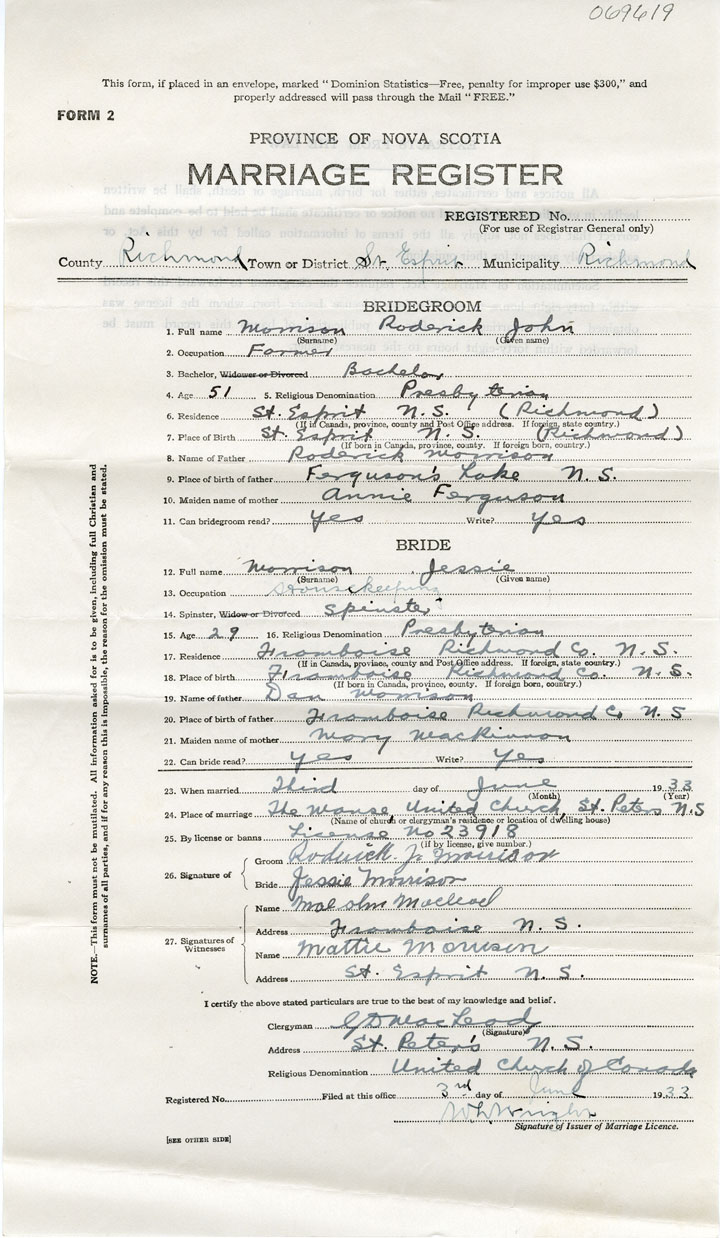 069619
This form, if placed in an envelope, marked "Dominion Statistics—Free, penalty for improper use $300," and
properly addressed will pass through the Mail "FREE."
FORM 2
PROVINCE OF NOVA SCOTIA
MARRIAGE REGISTER
REGISTERED No.
(For use of Registrar General only)
County Richmond Town or District St. Esprit Municipality Richmond
BRIDEGROOM
1. Full name Morrison Roderick John
(Surname) (Given name)
2. Occupation Farmer
3. Bachelor, Widower or Divorced Bachelor
4. Age 51 5. Religious Denomination Presbyterian
6. Residence St. Esprit N.S. (Richmond)
(If in Canada, province, county and Post Office address. If foreign, state country.)
7. Place of Birth St. Esprit N.S. (Richmond)
(If born in Canada, province, county. If foreign born, country.)
8. Name of Father Roderick Morrison
9. Place of birth of father Ferguson's Lake N.S.
10. Maiden name of mother Annie Ferguson
11. Can bridegroom read? Yes Write? Yes
BRIDE
12. Full name Morrison Jessie
(Surname) (Given name)
13. Occupation Housekeeping
14. Spinster, Widow or Divorced Spinster
15. Age 29 16. Religious Denomination Presbyterian
17. Residence Framboise Richmond Co. N.S.
(If in Canada, province, county and Post Office address. If foreign, state country.)
18. Place of birth Framboise Richmond Co. N.S.
(If born in Canada, province, county. If foreign born, country.)
19. Name of father Dan Morrison
20. Place of birth of father Framboise Richmond Co N.S
21. Maiden name of mother Mary MacKinnon
22. Can bride read? Yes Write? Yes
23. When married Third day of June 1933
(Month) (Year)
24. Place of marriage The Manse, United Church, St. Peters N.S
(Name of church or clergyman's residence or location of dwelling house)
25. By license or banns License No 23918
(If by license, give number.)
26. Signature of
Groom Roderick J. Morrison
Bride Jessie Morrison
27. Signatures of Witnesses
Name Malcolm Macleod
Address Framboise N.S.
Name Mattie Morrison
Address St. Esprit N.S.
I certify the above stated particulars are true to the best of my knowledge and belief.
Clergyman G D MacLeod
(Signature)
Address St. Peter's N.S.
Religious Denomination United Church of Canada
Registered No. Filed at this office 3rd day of June 1933
Signature of Issuer of Marriage Licence.
[SEE OTHER SIDE]
NOTE.—This form must not be mutilated. All information asked for is to be given, including full Christian and
surnames of all parties, and if for any reason this is impossible, the reason for the omission must be stated.